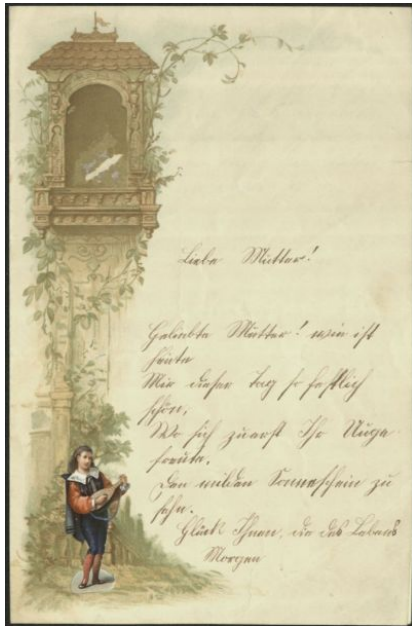 Liebe Mutter!
Geliebte Mutter! wie ist
heute
Mir dieser Tag so festlich
schön,
Wo sich zuerst Ihr Auge
freute,
Den milden Sonnenschein zu
sehn.
Glück Ihnen, die des Lebens
Morgen